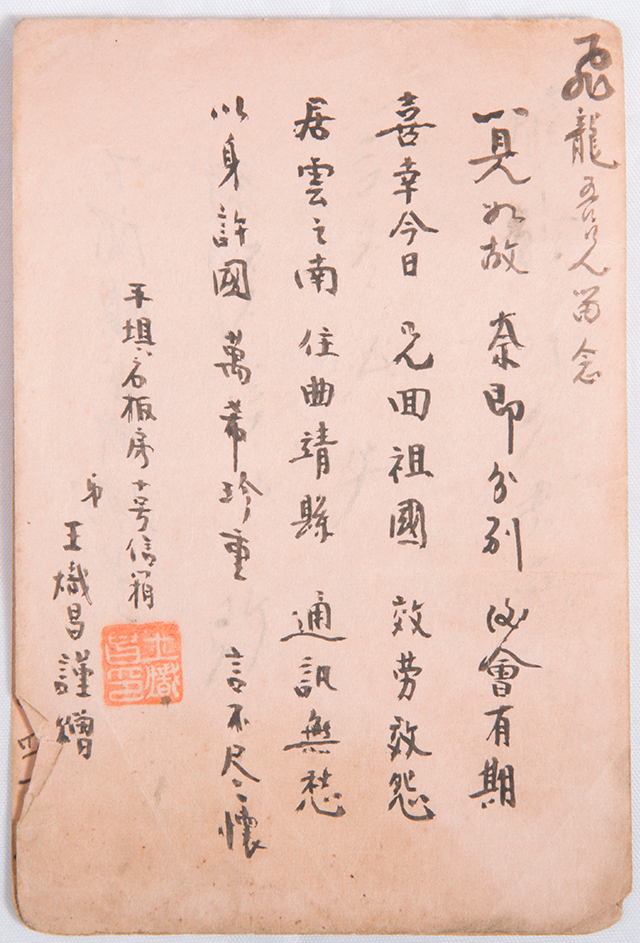 飛龍吾兄留念
一見如故 奈即分别 後會有期
喜幸今日 兄回祖國 效劳效怨
居雲之南 住曲靖縣 通訊無愁
以身許國 萬希珍重 言不尽懷
平壩石板房十号信箱
弟 王熾昌謹贈
王熾昌印